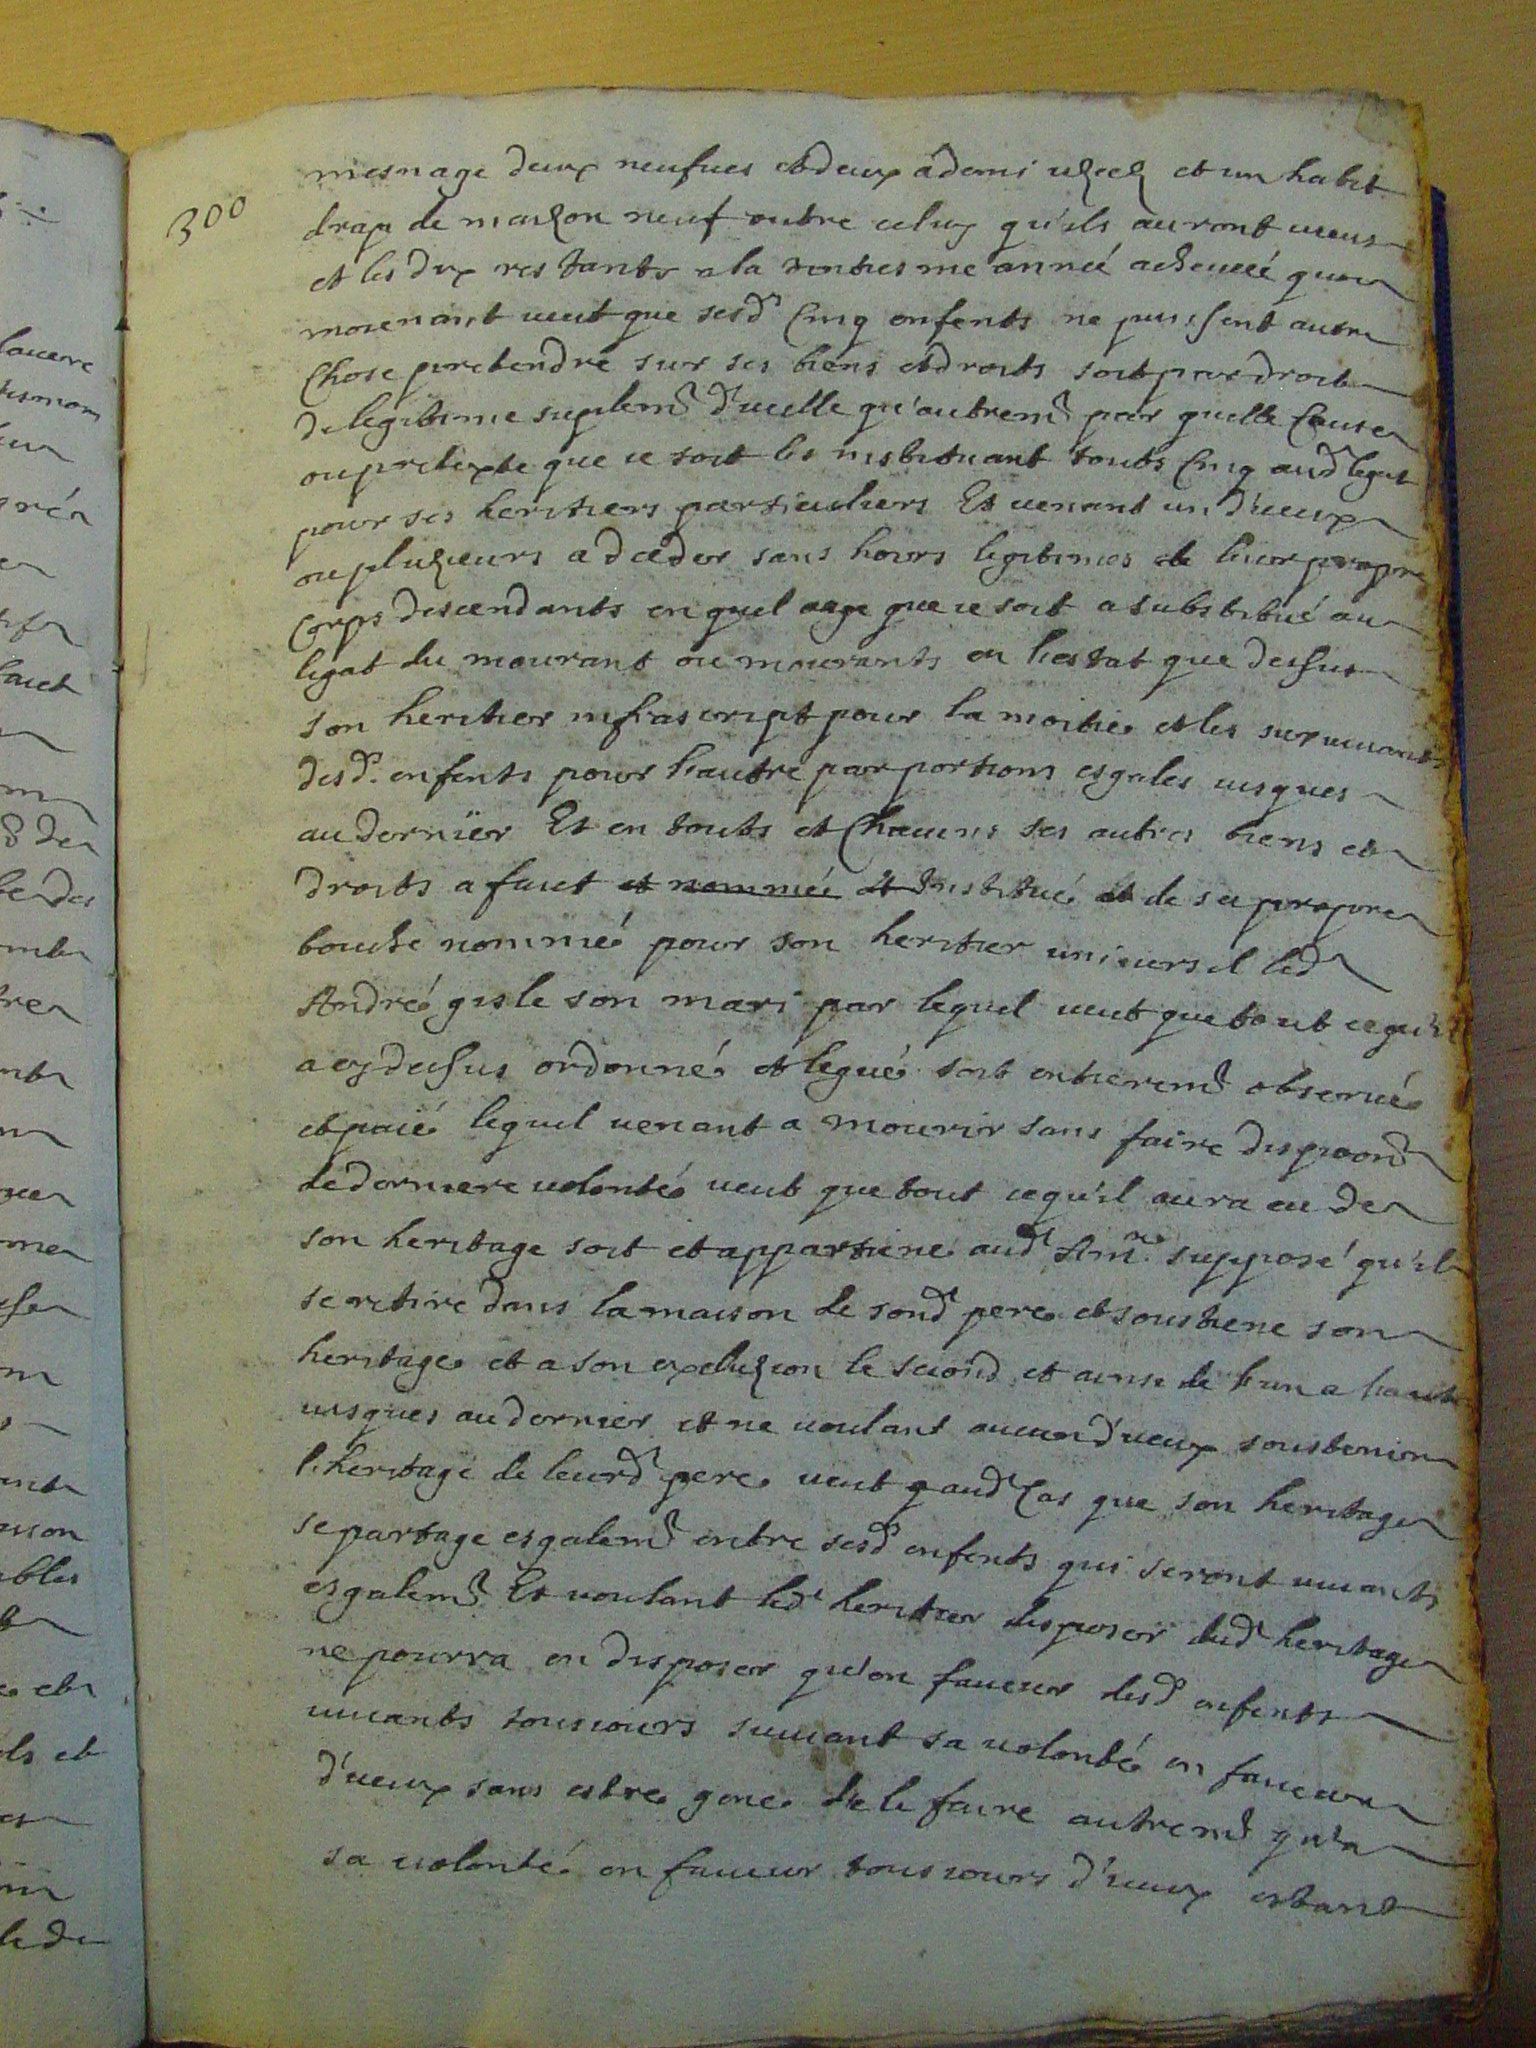 300
mesnage deux neufues et deux a demi uzées et un habit
drap de maizon neuf outre celuy qu'ils auront uieux
et les dix restants a la vintiesme année acheueé quoi
moienant ueut que sesd cinq enfents ne puissent autre
Chose pretendre sur ses biens et droits soit par droit
de legitime suplemt d'icelle qu'autremt par quelle Cause
ou pretexte que ce soit les instituant touts Cinq aud legat
pour ses heritiers particuliers Et uenant un d'ieux
ou pluzieurs a deceder sans hoirs legitimes de leur propre
Corps descendants en quel aage que ce soit a substitué au
legat du mourant ou mourants en l'estat que dessus
son heritier infrascript pour la moitie et les suruiuants
desd. enfents pour l'autre par portions esgales iusques
au dernïer Et en touts et Chacuns ses autres biens et
droits a faict et nommée et Institué et de sa propre
bouche nommé pour son heritier uniuersel led
André gisle son mari par lequel ueut que tout ce qu'il
a cy dessus ordonné et legué soit entieremt obserué
et paié lequel uenant a mourir sans faire dispoon
de derniere uolonté ueut que tout ce qu'il aura eu de
son heritage soit et appartiene aud Amne supposé qu'il
se retire dans la maison de sond pere et soustiene son
heritage et a son excluzion le second et ainsi de l'un a l'autre
iusques au dernier et ne uoulant aucun d'ieux soustenir
l'heritage de leurd pere ueut qaud Cas que son heritage
se partage esgalemt entre sesd enfents qui seront uiuants
esgalemt Et uoulant led heritier disposer dud heritage
ne pourra en disposer qu'en faueur desd enfents
uiuants tousiours suiuant sa uolonté en faueur
d'ieux sans estre gené de le faire autremt qu'a
sa uolonté en faueur tousiours d'ieux estant